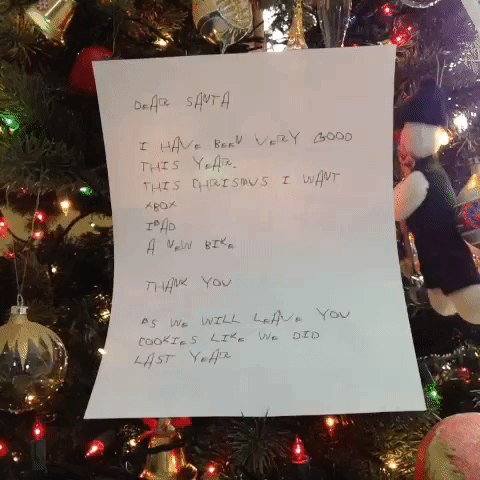 DEAR SANTA
I HAVE BEEN VERY GOOD
THIS YEAR.
THIS CHRISMUS I WANT
XBOX
IPAD
A NEW BIKE
THANK YOU
PS WE WILL LEAVE YOU
COOKIES LIKE WE DID
LAST YEAR